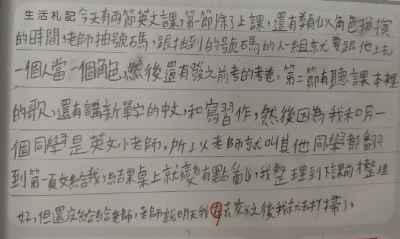 生活札記今天有兩節英文課,第一節除了上課,還有類似角色扮演
的時間,老師抽號碼,跟抽到的號碼的人一組就要跟他上去
一個人當一個角色,然後還有發之前考的考卷,第二節有聽課本裡
的歌,還有講新單字的中文,和寫習作,然後因為我和另一
個同學是英文小老師,所以老師就叫其他同學都翻
到第一頁交給我,結果桌上就變有點亂,我整理到 才整理
好,但還沒給給老師,老師說明天我 去 交之後我就去打掃了。